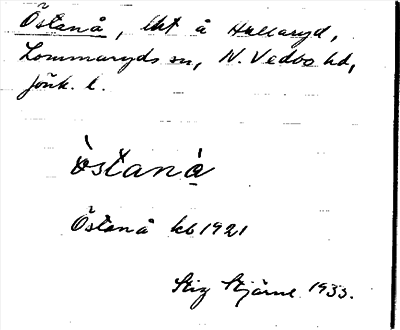 Östanå, lht å Hullaryd,
Lommaryds sn, N. Vedbo hd,
Jönk. l.
òstanà
Östanå kb 1921
Stig Stjärne 1933.